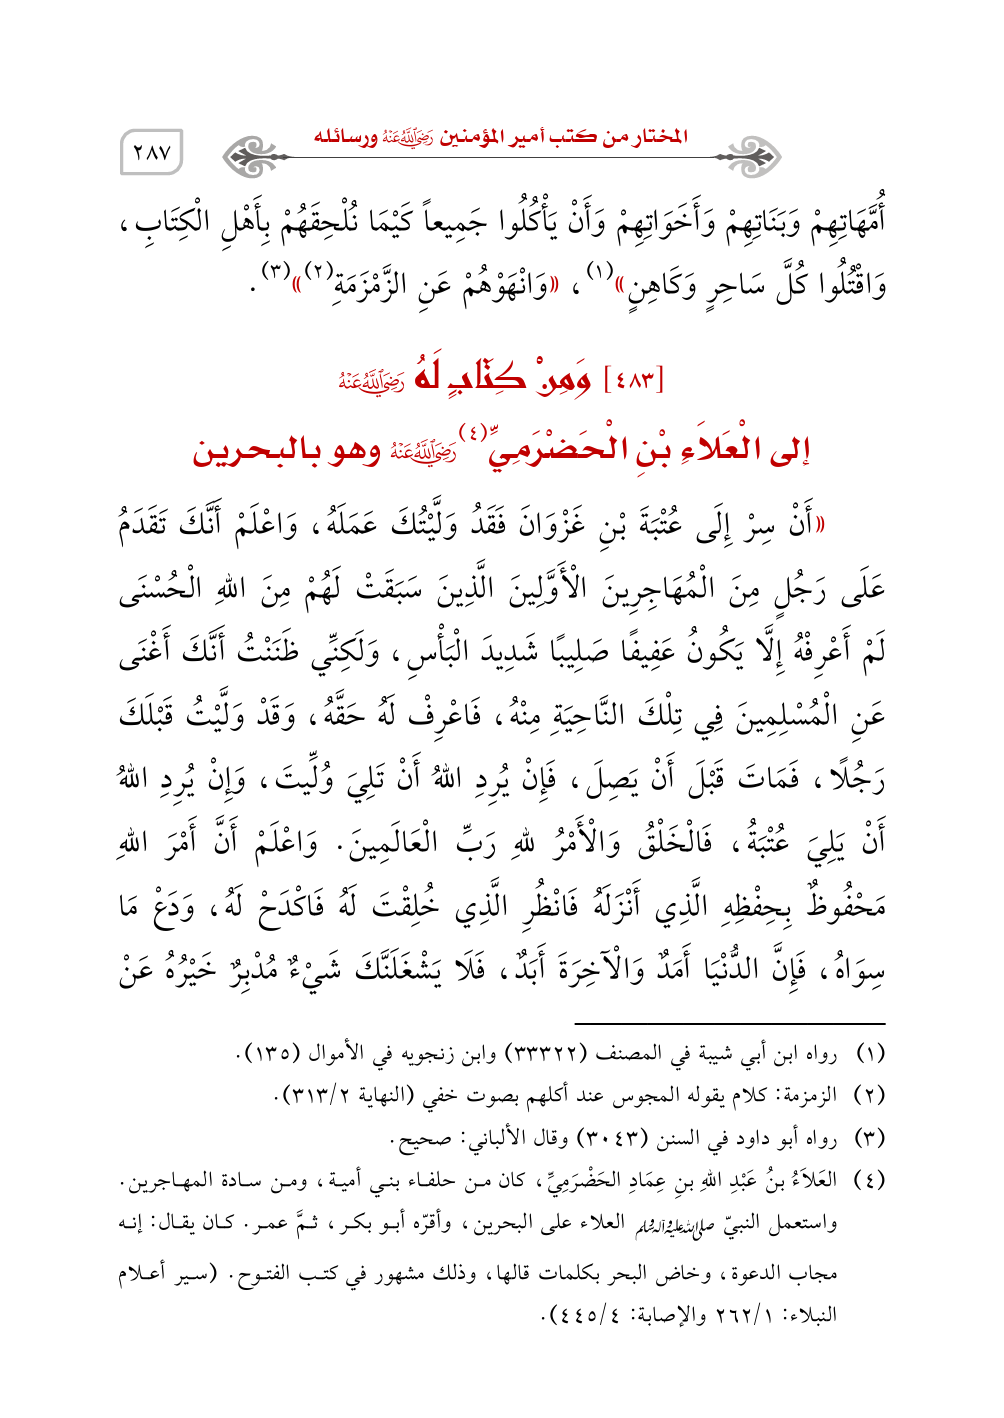 المختار من كتب أمير المؤمنين رَضِيَ اللَّهُ عَنْهُ ورسائله
٢٨٧
أُمَّهَاتِهِمْ وَبَنَاتِهِمْ وَأَخَوَاتِهِمْ وَأَنْ يَأْكُلُوا جَمِيعاً كَيْمَا نُلْحِقَهُمْ بِأَهْلِ الْكِتَابِ،
وَاقْتُلُوا كُلَّ سَاحِرٍ وَكَاهِنٍ»(١)، «وَانْهَوْهُمْ عَنِ الزَّمْزَمَةِ(٢)»(٣).
[٤٨٣] وَمِنْ كِتَابٍ لَهُ رَضِيَ اللَّهُ عَنْهُ
إلى الْعَلاَءِ بْنِ الْحَضْرَمِيِّ(٤) رَضِيَ اللَّهُ عَنْهُ وهو بالبحرين
«أَنْ سِرْ إِلَى عُتْبَةَ بْنِ غَزْوَانَ فَقَدُ وَلَّيْتُكَ عَمَلَهُ، وَاعْلَمْ أَنَّكَ تَقَدَمُ
عَلَى رَجُلٍ مِنَ الْمُهَاجِرِينَ الْأَوَّلِينَ الَّذِينَ سَبَقَتْ لَهُمْ مِنَ اللهِ الْحُسْنَى
لَمْ أَعْرِفْهُ إِلَّا يَكُونُ عَفِيفًا صَلِيبًا شَدِيدَ الْبَأْسِ، وَلَكِنِّي ظَنَنْتُ أَنَّكَ أَغْنَى
عَنِ الْمُسْلِمِينَ فِي تِلْكَ النَّاحِيَةِ مِنْهُ، فَاعْرِفْ لَهُ حَقَّهُ، وَقَدْ وَلَّيْتُ قَبْلَكَ
رَجُلًا، فَمَاتَ قَبْلَ أَنْ يَصِلَ، فَإِنْ يُرِدِ اللهُ أَنْ تَلِيَ وُلِّيتَ، وَإِنْ يُرِدِ اللهُ
أَنْ يَلِيَ عُتْبَةُ، فَالْخَلْقُ وَالْأَمْرُ للهِ رَبِّ الْعَالَمِينَ. وَاعْلَمْ أَنَّ أَمْرَ اللهِ
مَحْفُوظٌ بِحِفْظِهِ الَّذِي أَنْزَلَهُ فَانْظُرِ الَّذِي خُلِقْتَ لَهُ فَاكْدَحْ لَهُ، وَدَعْ مَا
سِوَاهُ، فَإِنَّ الدُّنْيَا أَمَدٌ وَالْآخِرَةَ أَبَدٌ، فَلَا يَشْغَلَنَّكَ شَيْءٌ مُدْبِرٌ خَيْرُهُ عَنْ
(١) رواه ابن أبي شيبة في المصنف (٣٣٣٢٢) وابن زنجويه في الأموال (١٣٥).
(٢) الزمزمة: كلام يقوله المجوس عند أكلهم بصوت خفي (النهاية ٣١٣/٢).
(٣) رواه أبو داود في السنن (٣٠٤٣) وقال الألباني: صحيح.
(٤) العَلاَءُ بنُ عَبْدِ اللهِ بنِ عِمَادِ الحَضْرَمِيِّ، كان من حلفاء بني أمية، ومن سادة المهاجرين.
واستعمل النبيّ صلى الله عليه وآله وسلم العلاء على البحرين، وأقرّه أبو بكر، ثمَّ عمر. كان يقال: إنه
مجاب الدعوة، وخاض البحر بكلمات قالها، وذلك مشهور في كتب الفتوح. (سير أعلام
النبلاء: ٢٦٢/١ والإصابة: ٤٤٥/٤).